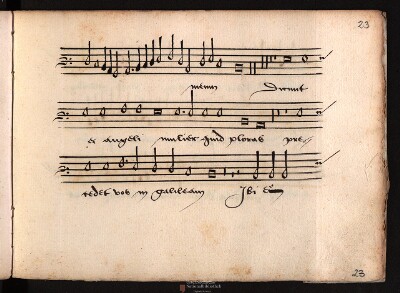 23
meum Dicunt
ei angeli mulier quid ploras pre
cedet vos in galileam Ibi eũ
23